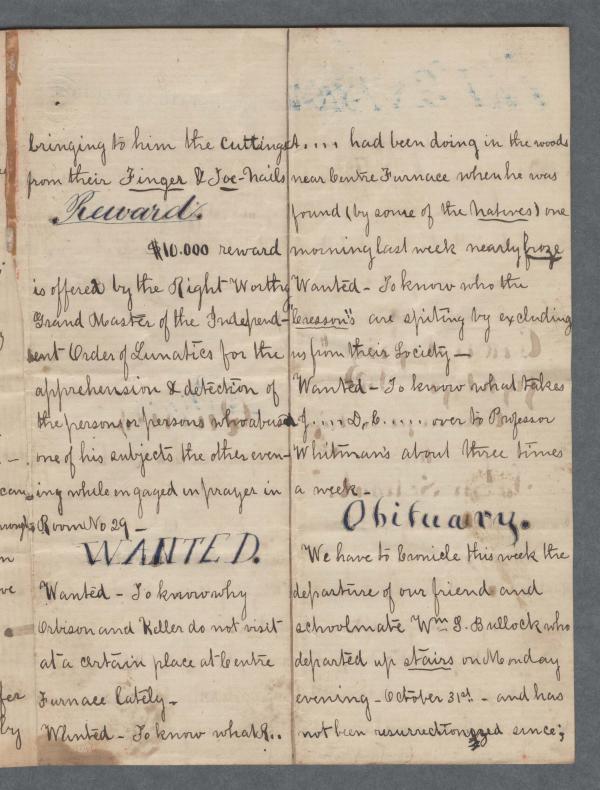 bringing to him the cuttings
from their Finger & Toe-Nails
Reward.
$10.000 reward
is offered by the Right Worthy
Grand Master of the Independ-
ent Order of Lunatics for the
apprehension & detection of
the person or persons who abused
one of his subjects the other even-
ing while engaged in prayer in
Room No 29 –
WANTED.
Wanted – To know why
Orbison and Keller do not visit
at a certain place at Centre
Furnace lately –
Wanted – To know what
.... had been doing in the woods
near Centre Furnace when he was
found (by some of the Natives) one
morning last week nearly froze
Wanted – To know who the
"Cresson's are spiting by excluding
us from their Society –
Wanted – To know what takes
J.... D. C..... over to Professor
Whitman's about three times
a week –
Obituary.
We have to Cronicle this week the
departure of our friend and
schoolmate Wm S. Bullock who
departed up stairs on Monday
evening – October 31st – and has
not been resurrectionized since;